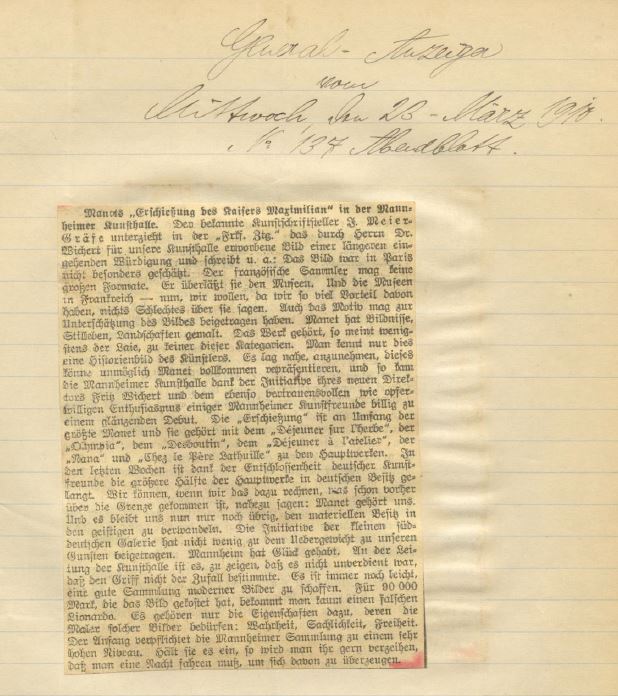 General-Anzeiger
vom
Mittwoch, den 23. März 1910.
No 137 Abendblatt.
Manets „Erschießung des Kaisers Maximilian“ in der Mann-
heimer Kunsthalle. Der bekannte Kunstschriftsteller J. Meier-
Gräfe unterzieht in der „Frkf. Ztg.“ das durch Herrn Dr.
Wichert für unsere Kunsthalle erworbene Bild einer längeren ein-
gehenden Würdigung und schreibt u. a.: Das Bild war in Paris
nicht besonders geschätzt. Der französische Sammler mag keine
großen Formate. Er überläßt sie den Museen. Und die Museen
in Frankreich — nun, wir wollen, da wir so viel Vorteil davon
haben, nichts Schlechtes über sie sagen. Auch das Motiv mag zur
Unterschätzung des Bildes beigetragen haben. Manet hat Bildnisse,
Stilleben, Landschaften gemalt. Das Werk gehört, so meint wenig-
stens der Laie, zu keiner dieser Kategorien. Man kennt nur dies
eine Historienbild des Künstlers. Es lag nahe, anzunehmen, dieses
könne unmöglich Manet vollkommen repräsentieren, und so kam
die Mannheimer Kunsthalle dank der Initiative ihres neuen Direk-
tors Fritz Wichert und dem ebenso vertrauensvollen wie opfer-
willigen Enthusiasmus einiger Mannheimer Kunstfreunde billig zu
einem glänzenden Debut. Die „Erschießung“ ist an Umfang der
größte Manet und sie gehört mit dem „Déjeuner sur l'herbe“, der
„Olympia“, dem „Desboutin“, dem „Déjeuner à l'atelier“, der
„Nana“ und „Chez le Père Lathuille“ zu den Hauptwerken. In
den letzten Wochen ist dank der Entschlossenheit deutscher Kunst-
freunde die größere Hälfte der Hauptwerke in deutschen Besitz ge-
langt. Wir können, wenn wir das dazu rechnen, was schon vorher
über die Grenze gekommen ist, nahezu sagen: Manet gehört uns.
Und es bleibt uns nun nur noch übrig, den materiellen Besitz in
den geistigen zu verwandeln. Die Initiative der kleinen süd-
deutschen Galerie hat nicht wenig zu dem Uebergewicht zu unseren
Gunsten beigetragen. Mannheim hat Glück gehabt. An der Lei-
tung der Kunsthalle ist es, zu zeigen, daß es nicht unverdient war,
daß den Griff nicht der Zufall bestimmte. Es ist immer noch leicht,
eine gute Sammlung moderner Bilder zu schaffen. Für 90 000
Mark, die das Bild gekostet hat, bekommt man kaum einen falschen
Lionardo. Es gehören nur die Eigenschaften dazu, deren die
Maler solcher Bilder bedürfen: Wahrheit, Sachlichkeit, Freiheit.
Der Anfang verpflichtet die Mannheimer Sammlung zu einem sehr
hohen Niveau. Hält sie es ein, so wird man ihr gern verzeihen,
daß man eine Nacht fahren muß, um sich davon zu überzeugen.